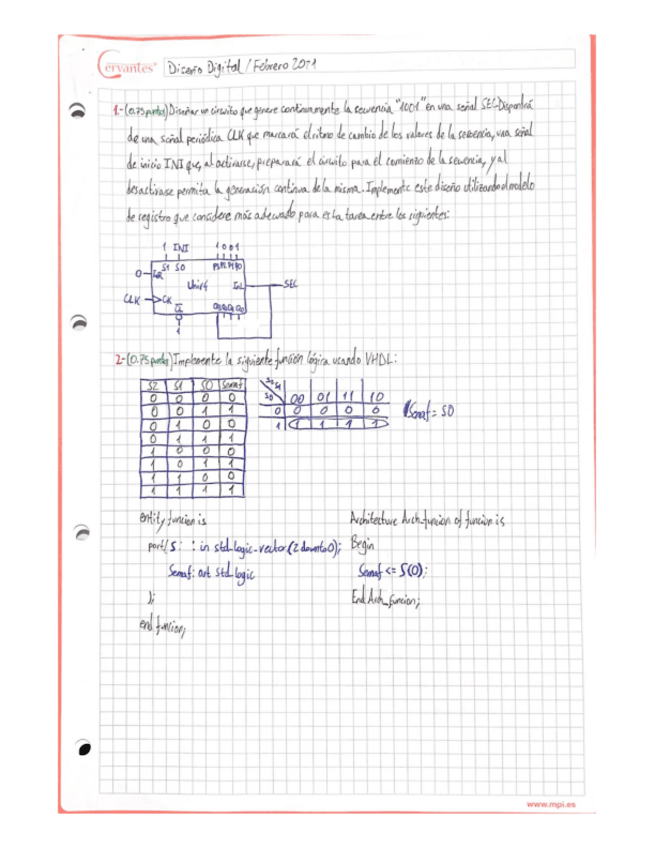 Cervantes Diseño Digital / Febrero 2021
1.- (0.75 puntos) Diseñar un circuito que genere continuamente la secuencia "1001" en una señal SEC. Dispondrá
de una señal periódica CLK que marcará el ritmo de cambio de los valores de la secuencia, una señal
de inicio INI que, al activarse, preparará el circuito para el comienzo de la secuencia, y al
desactivarse permita la generación continua de la misma. Implemente este diseño utilizando el modelo
de registro que considere más adecuado para esta tarea entre los siguientes:
1 INI 1 0 0 1
S1 S0 P3 P2 P1 P0
0
Univ4
SEC
CLK CK
CL
1
2- (0.75 puntos) Implemente la siguiente función lógica usando VHDL:
S2 S1 S0 Semaf
0 0 0 0
0 0 1 1
0 1 0 0
0 1 1 1
1 0 0 0
1 0 1 1
1 1 0 0
1 1 1 1
S2 S1
S0 00 01 11 10
0 0 0 0 0
1 1 1 1 1
Semaf = S0
entity funcion is
port( S : in std_logic_vector (2 downto 0);
Semaf: out std_logic
);
end funcion;
Architecture Arch_funcion of funcion is
Begin
Semaf <= S(0);
End Arch_funcion;
www.mpi.es